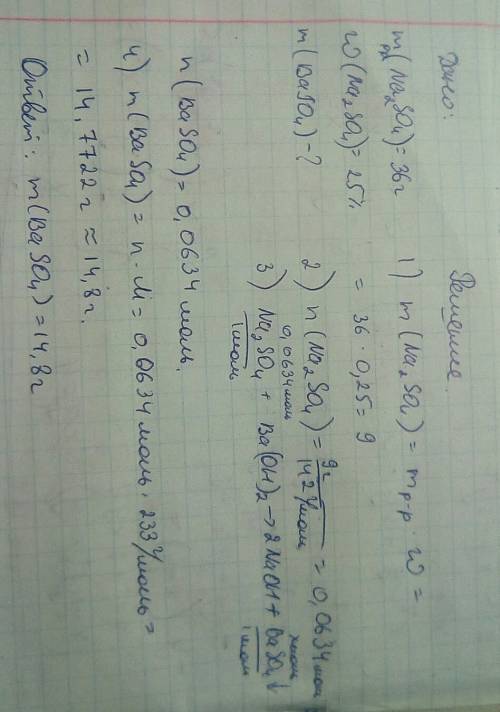 Дано:
m(Na₂SO₄)=36г
р-р
w(Na₂SO₄)=25%
m(BaSO₄)-?
Решение.
1) m(Na₂SO₄) = mр-р · w =
= 36 · 0,25 = 9
2) n(Na₂SO₄) = 9г / 142 г/моль = 0,0634 мол
0,0634 моль хмоль
3) Na₂SO₄ + Ba(OH)₂ → 2NaOH + BaSO₄↓
1 моль 1 моль
n(BaSO₄) = 0,0634 моль.
4) m(BaSO₄) = n · M = 0,0634 моль · 233 г/моль =
= 14,7722 г ≈ 14,8г.
Ответ: m(BaSO₄) = 14,8г